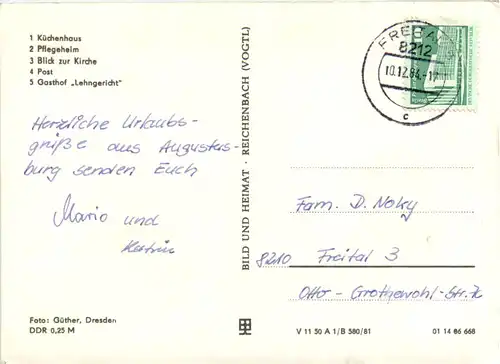 1 Küchenhaus
2 Pflegeheim
3 Blick zur Kirche
4 Post
5 Gasthof „Lehngericht"
Herzliche Urlaubs-
grüße aus Augustus-
burg senden Euch
Mario und
Katrin
Foto: Güther, Dresden
DDR 0,25 M
BILD UND HEIMAT · REICHENBACH (VOGTL)
8212
10.12.84.-17
c
Fam. D. Noky
8210 Freital 3
Otto-Grotewohl-Str.
V 11 50 A 1/B 580/81
01 14 86 668